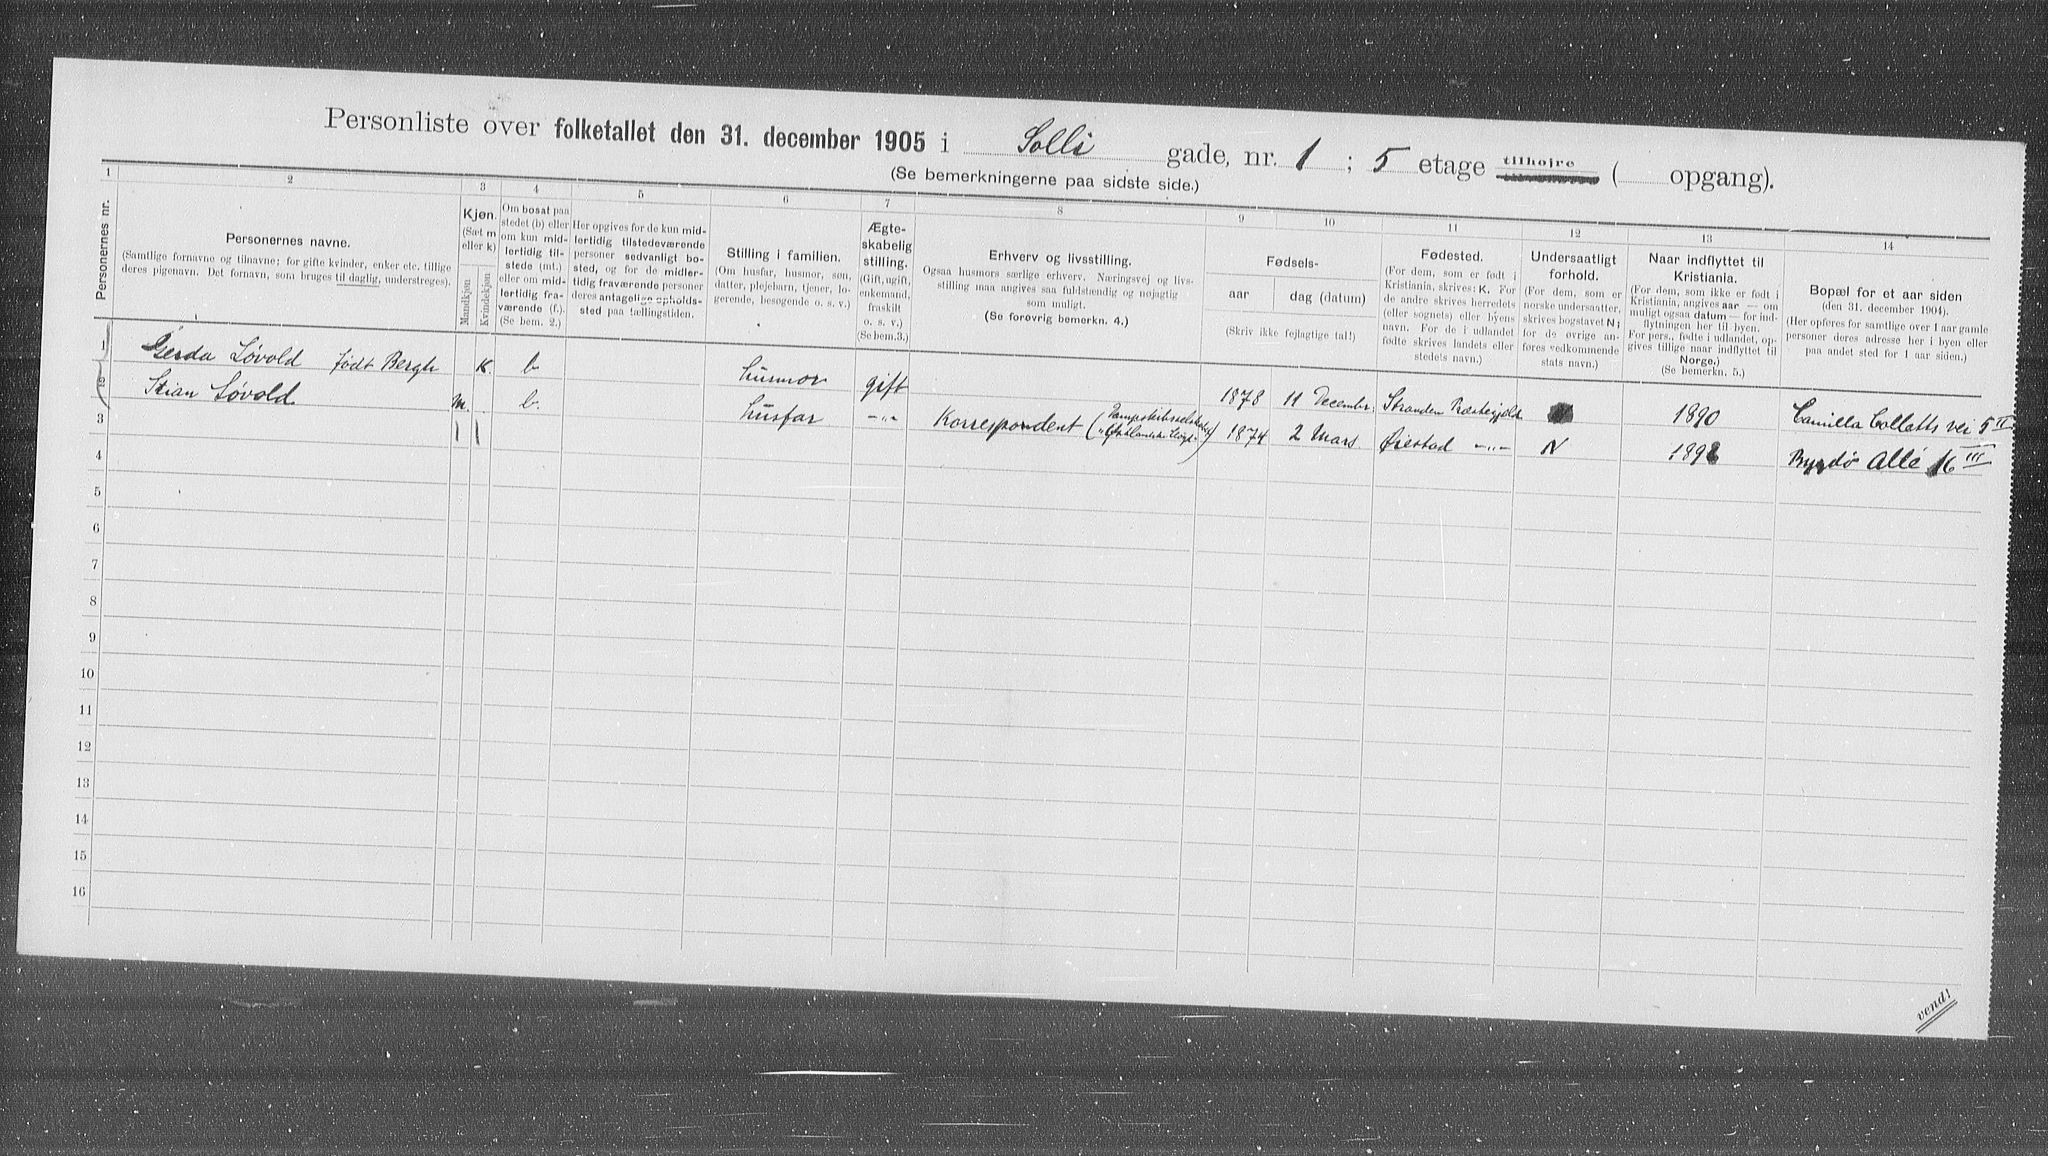 Personliste over folketallet den 31. december 1905 i Solli gade, nr. 1 ; 5 etage tilhøjre ( opgang).
(Se bemerkningerne paa sidste side.)
1 2 3 4 5 6 7 8 9 10 11 12 13 14
Personernes nr.
Personernes navne.
(Samtlige fornavne og tilnavne; for gifte kvinder, enker etc. tillige
deres pigenavn. Det fornavn, som bruges til daglig, understreges).
Kjøn.
(Sæt m
eller k)
Mandkjøn
Kvindekjøn
Om bosat paa
stedet (b) eller
om kun mid-
lertidig til-
stede (mt.)
eller om mid-
lertidig fra-
værende (f.).
(Se bem. 2.)
Her opgives for de kun mid-
lertidig tilstedeværende
personer sedvanligt bo-
sted, og for de midler-
tidig fraværende personer
deres antagelige opholds-
sted paa tællingstiden.
Stilling i familien.
(Om husfar, husmor, søn,
datter, plejebarn, tjener, lo-
gerende, besøgende o. s. v.)
Ægte-
skabelig
stilling.
(Gift, ugift,
enkemand,
fraskilt
o. s. v.)
(Se bem. 3.)
Erhverv og livsstilling.
Ogsaa husmors særlige erhverv. Næringsvej og livs-
stilling maa angives saa fuldstændig og nøjagtig
som muligt.
(Se forøvrig bemerkn. 4.)
Fødsels-
aar dag (datum)
(Skriv ikke fejlagtige tal!)
Fødested.
(For dem, som er født i
Kristiania, skrives: K. For
de andre skrives herredets
(eller sognets) eller byens
navn. For de i udlandet
fødte skrives landets eller
stedets navn.)
Undersaatligt
forhold.
(For dem, som er
norske undersaatter,
skrives bogstavet N;
for de øvrige an-
føres vedkommende
stats navn.)
Naar indflyttet til
Kristiania.
(For dem, som ikke er født i
Kristiania, angives aar — om
muligt ogsaa datum — for ind-
flytningen her til byen.
For pers., fødte i udlandet, op-
gives tillige naar indflyttet til
Norge.)
(Se bemerkn. 5.)
Bopæl for et aar siden
(den 31. december 1904).
(Her opføres for samtlige over 1 aar gamle
personer deres adresse her i byen eller
paa andet sted for 1 aar siden.)
1 Gerda Løvold født Bergh K. b husmor gift 1878 11 Decembr. Stranden Præstegjeld 1890 Camilla Colletts vei 5 II
2 Stian Løvold m. b. husfar -"- Korrespondent 1874 2 Mars Øiestad -"- N Bygdø Allé 16 III
3
4
5
6
7
8
9
10
11
12
13
14
15
16
vend!